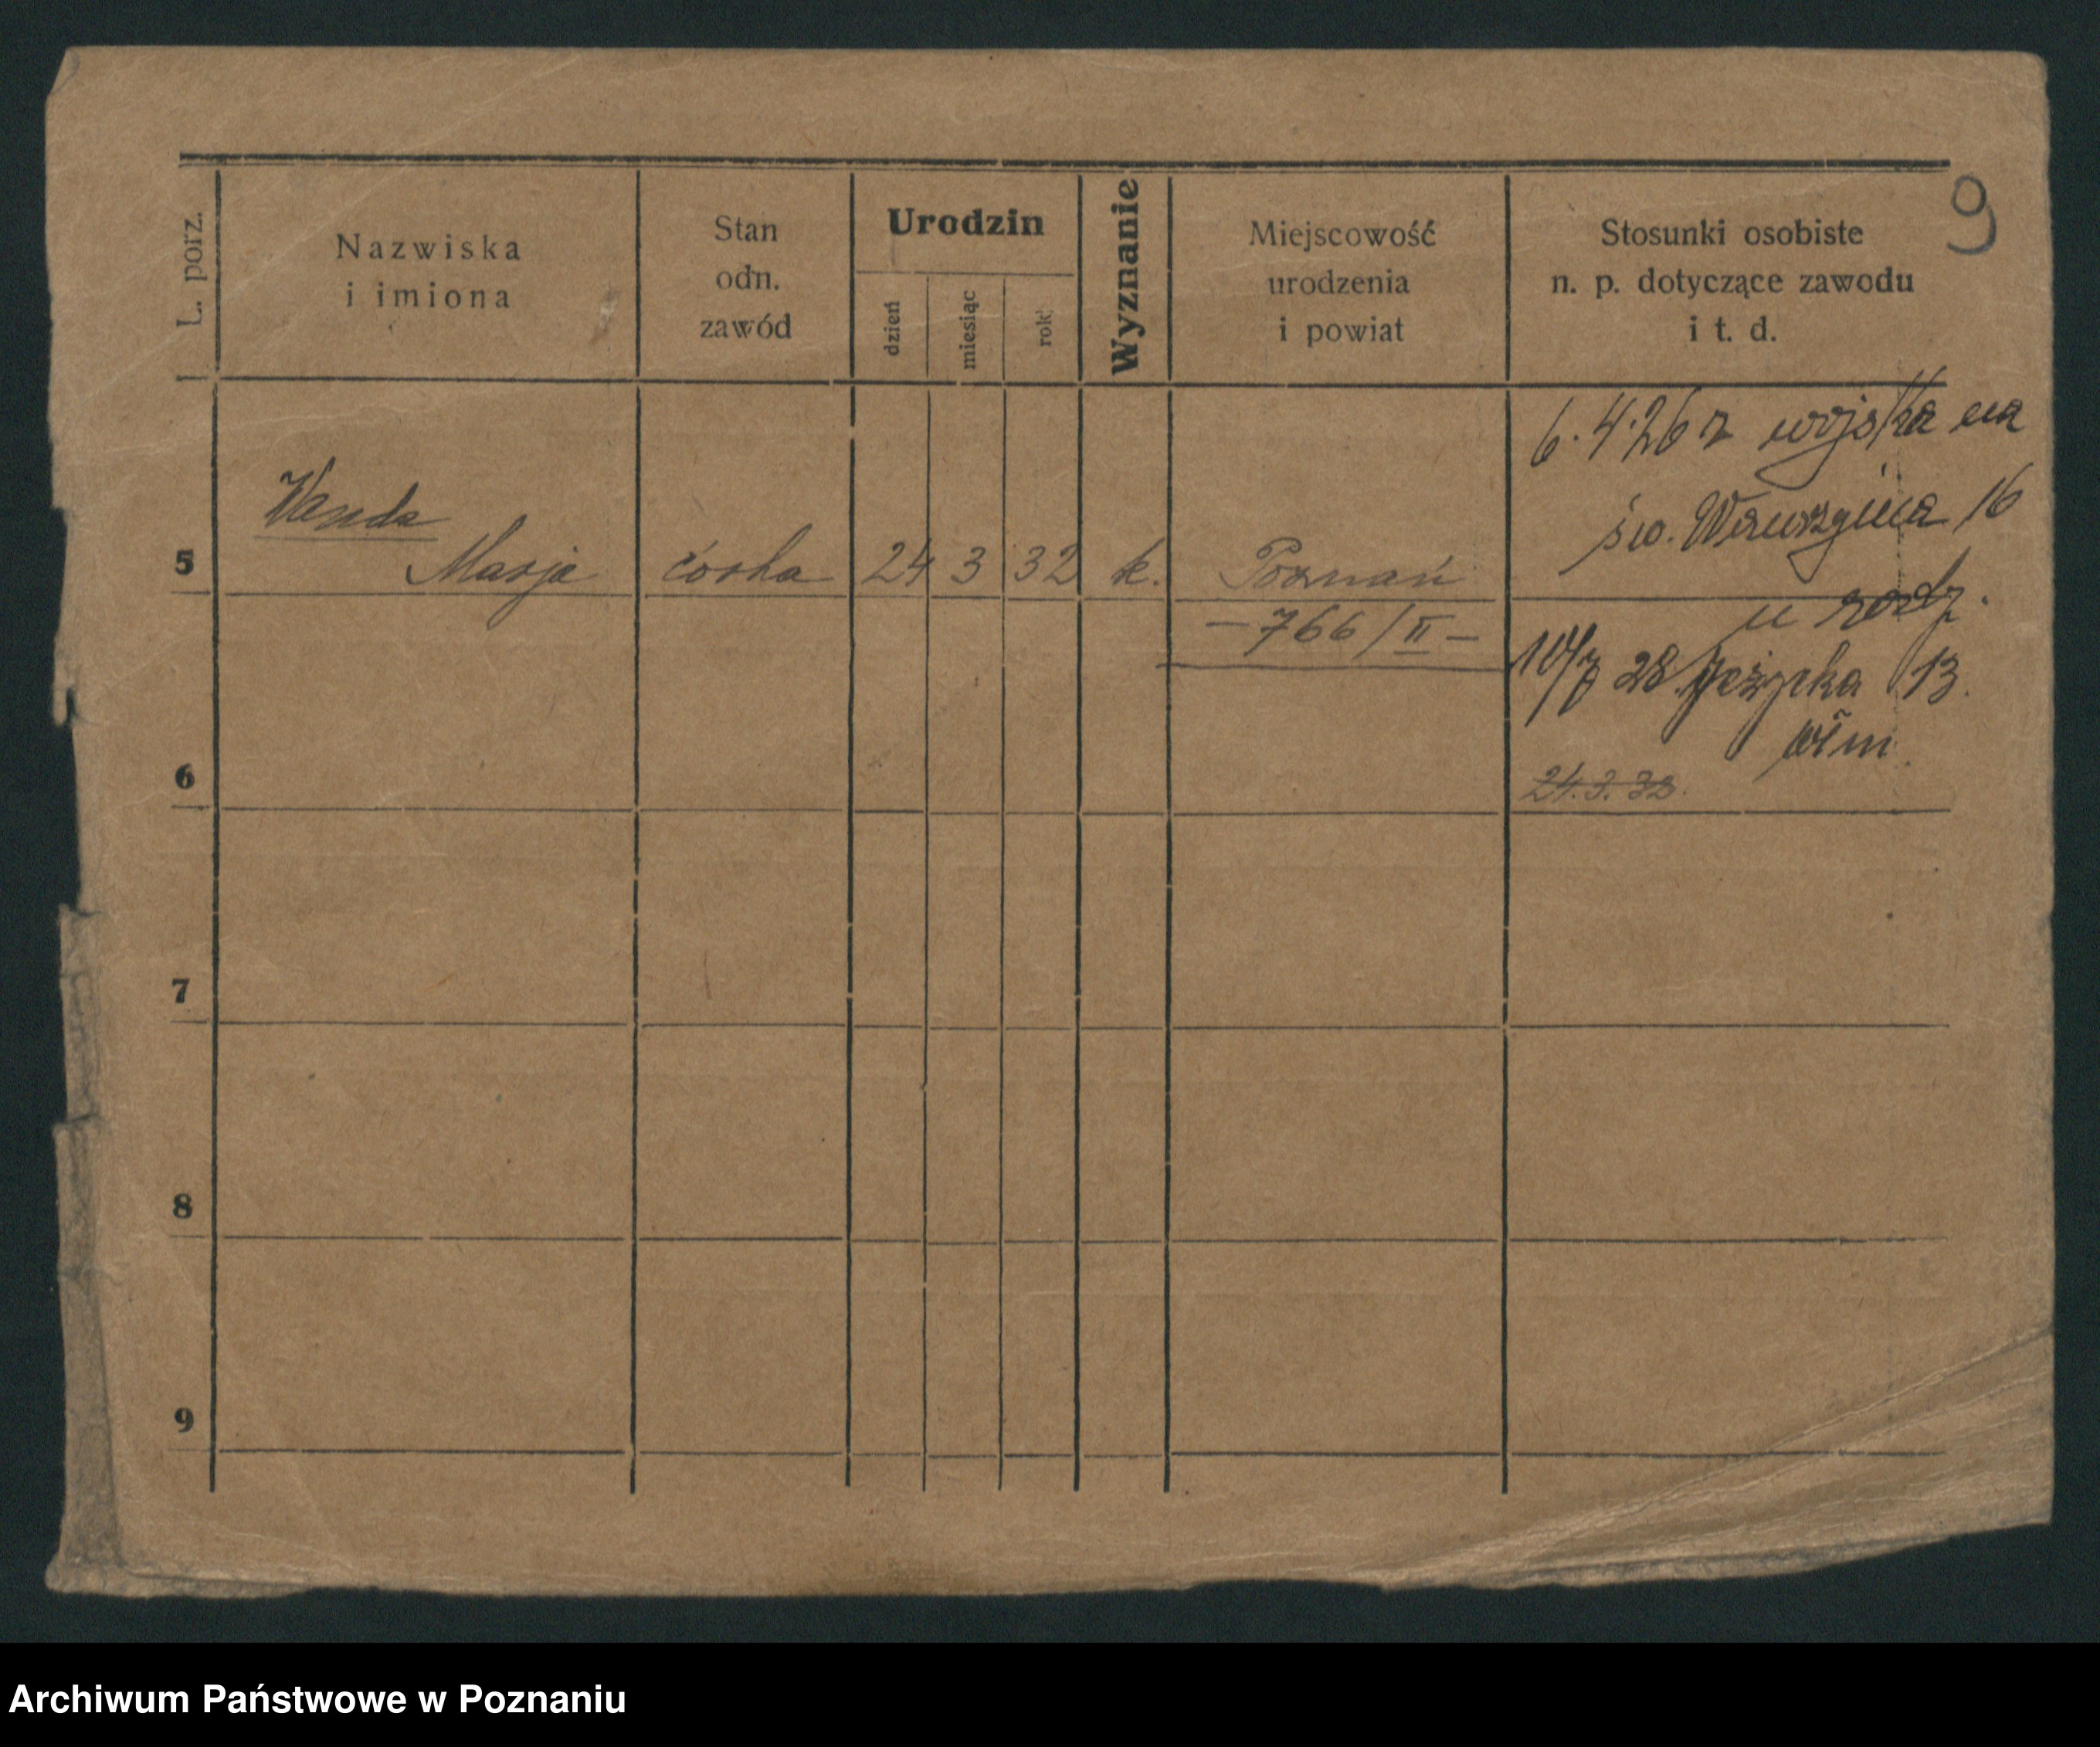 9
L. porz.
Nazwiska
i imiona
Stan
odn.
zawód
Urodzin
dzień
miesiąc
rok
Wyznanie
Miejscowość
urodzenia
i powiat
Stosunki osobiste
n. p. dotyczące zawodu
i t. d.
6.4.26 z wojska na
św. Wawrzyńca 16
u rodz.
10/7 28 Jeżycka 13.
24.3.32.
5
Wanda
Marja
córka
24
3
32
k.
Poznań
— 766/II —
6
7
8
9
Archiwum Państwowe w Poznaniu